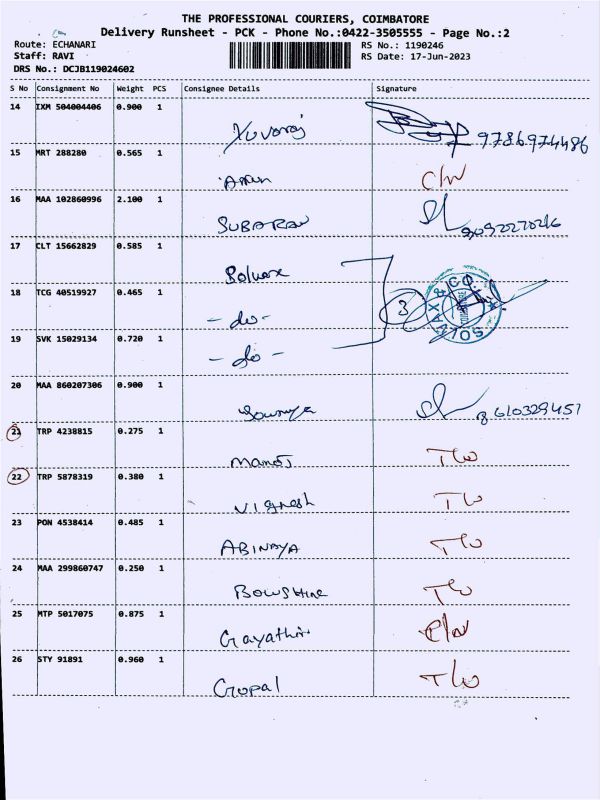 THE PROFESSIONAL COURIERS, COIMBATORE
Delivery Runsheet - PCK - Phone No.:0422-3505555 - Page No.:2
Route: ECHANARI RS No.: 1190246
Staff: RAVI RS Date: 17-Jun-2023
DRS No.: DCJB119024602
S No Consignment No Weight PCS Consignee Details Signature
14 IXM 504004406 0.900 1
Yuvaraj 9786974486
15 MRT 288280 0.565 1
Arun C/W
16 MAA 102860996 2.100 1
SUBARAV 9092270216
17 CLT 15662829 0.585 1
Solvax
18 TCG 40519927 0.465 1
- do - 3 SOLVAX & CO.
19 SVK 15029134 0.720 1
- do -
20 MAA 860207306 0.900 1
Sowmya 8610329457
21 TRP 4238815 0.275 1
Manoj T/W
22 TRP 5878319 0.380 1
Vignesh T/W
23 PON 4538414 0.485 1
ABINAYA T/W
24 MAA 299860747 0.250 1
Bowshine T/W
25 MTP 5017075 0.875 1
Gayathiri C/W
26 STY 91891 0.960 1
Gopal T/W